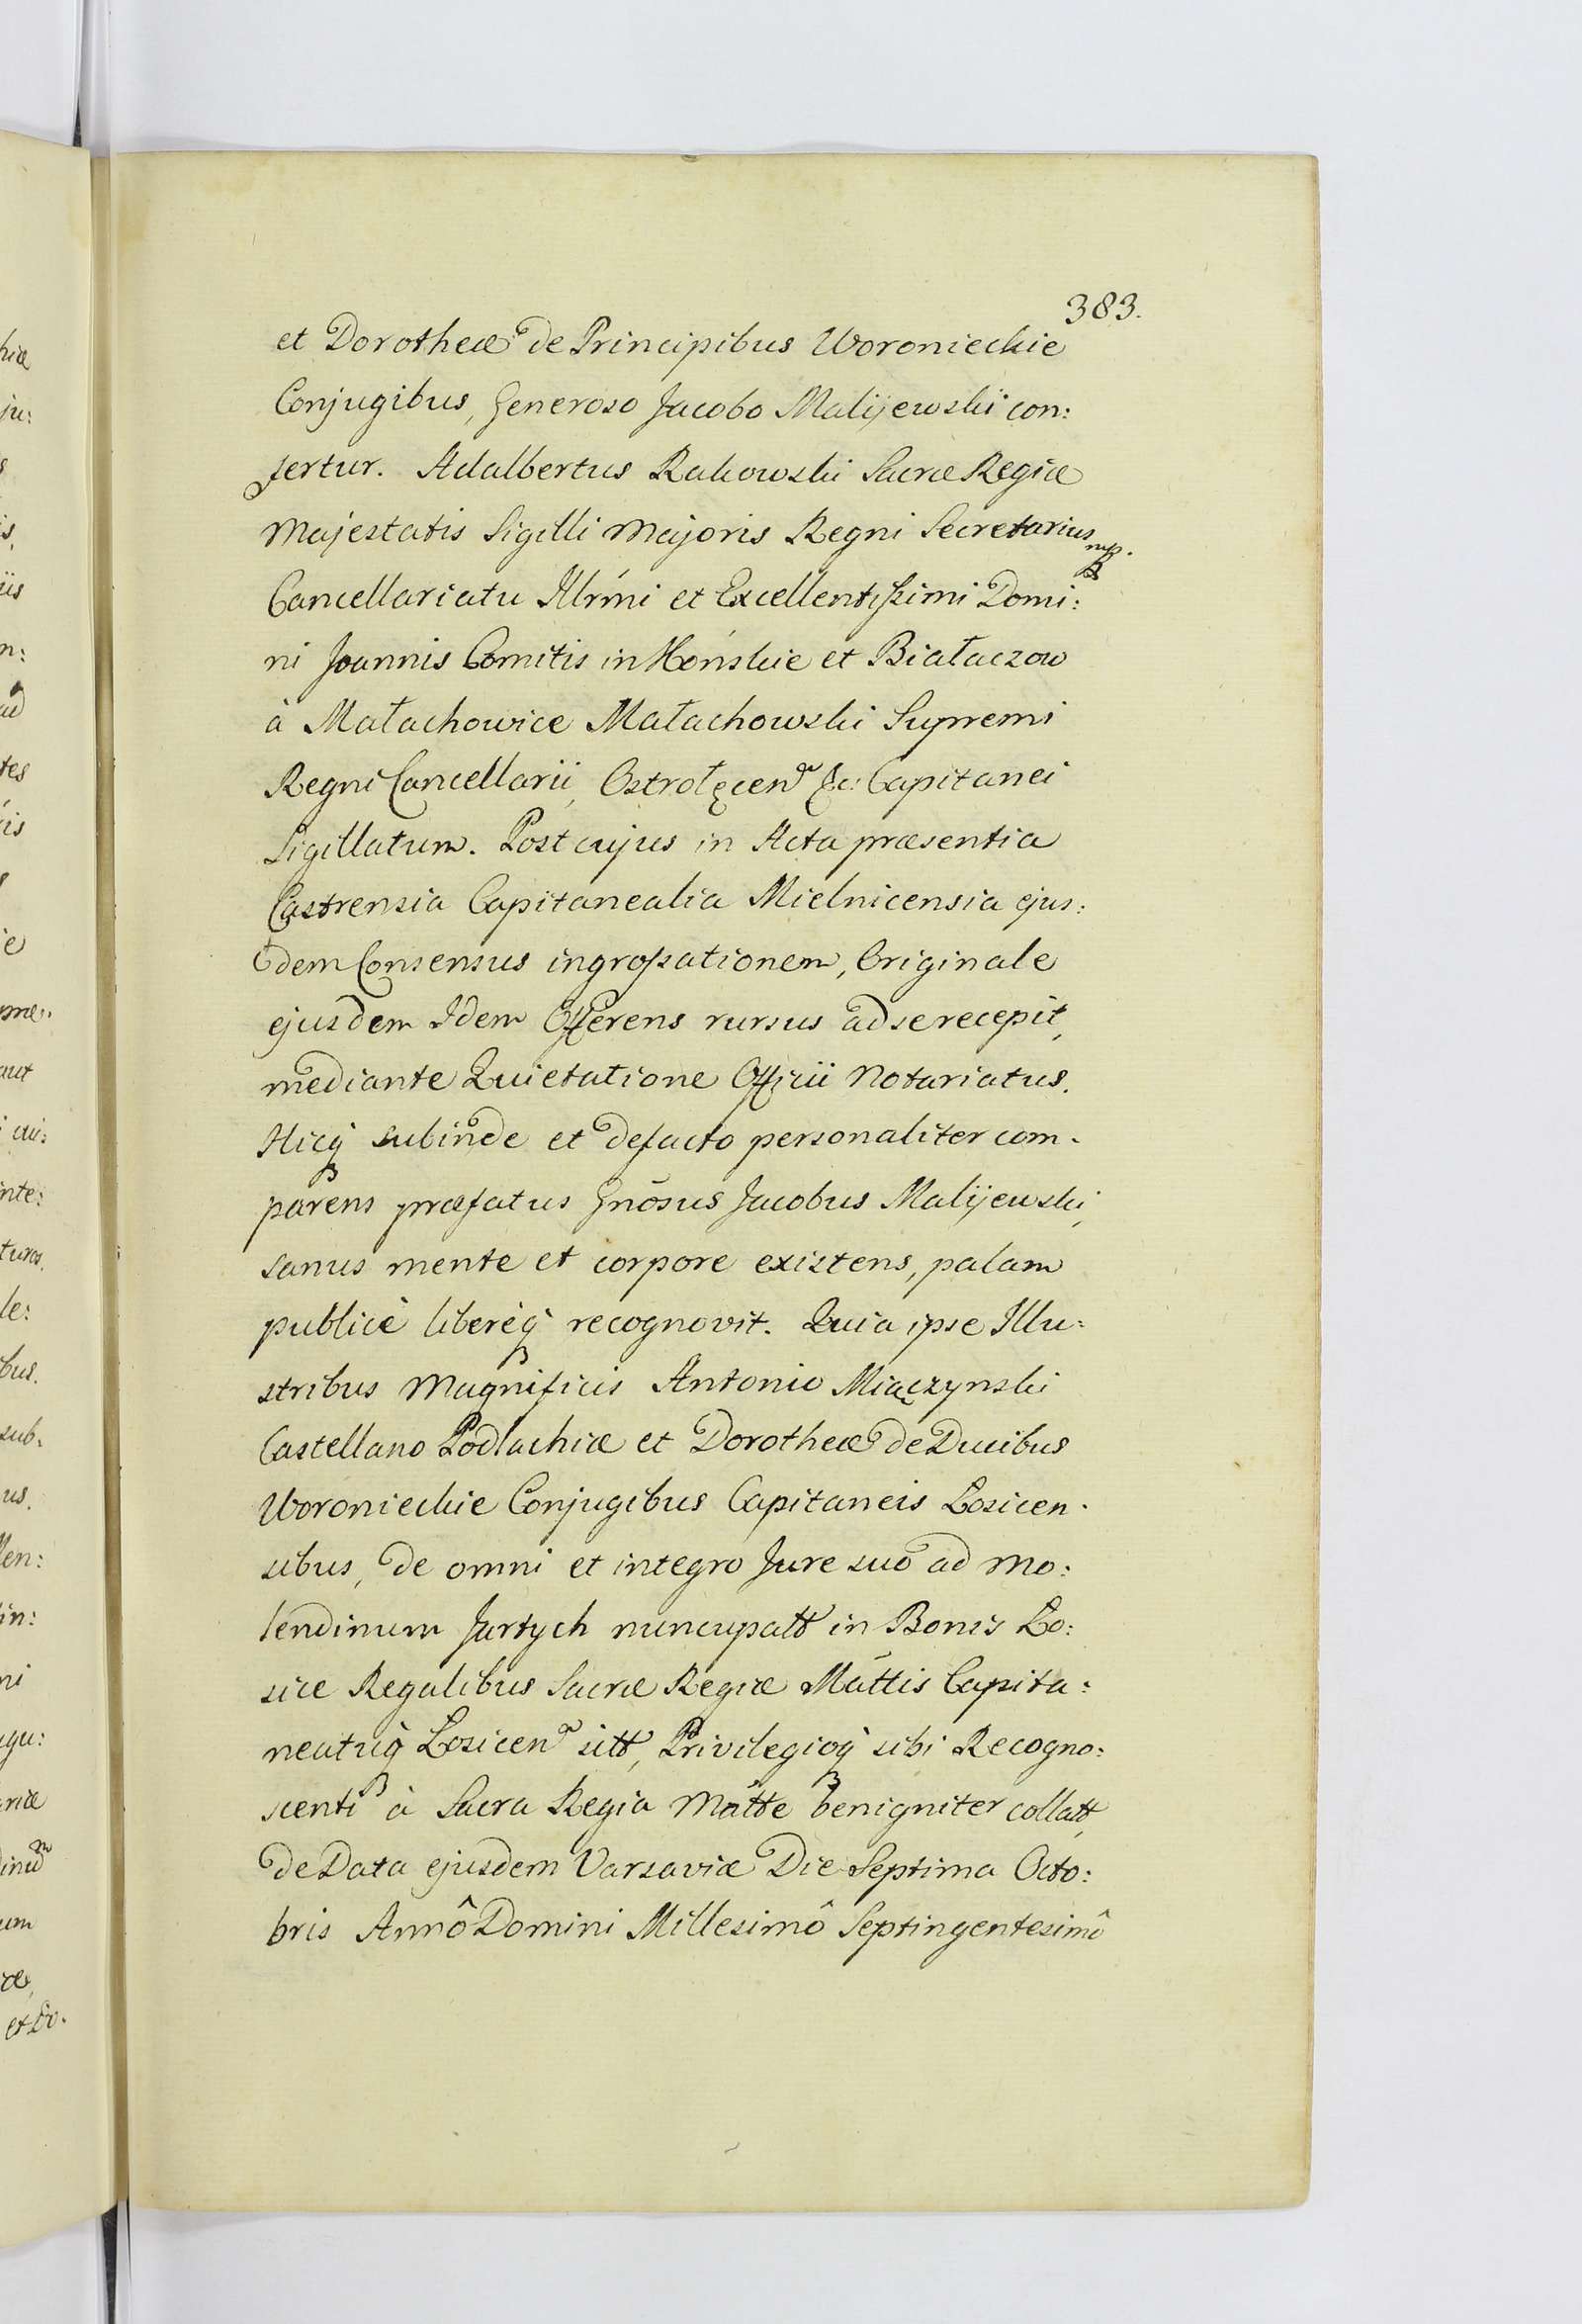 383.
et Dorotheæ de Principibus Woronieckie
Conjugibus, Generoso Jacobo Malijewski con:
fertur. Adalbertus Rakowski Sacræ Regiæ
Majestatis Sigilli Majoris Regni Secretarius mp.
Cancellariatu Illrmi et Excellentissimi Domi:
ni Joannis Comitis in Końskie et Białaczow
à Małachowice Małachowski Supremi
Regni Cancellarii, Ostrołęcen &c: Capitanei
Sigillatum. Post cujus in Acta præsentia
Castrensia Capitanealia Mielnicensia ejus:
dem Consensus ingrossationem, Originale
ejusdem Idem Offerens rursus ad se recepit,
mediante Quietatione Officii Notariatus.
Hicq subinde et defacto personaliter com.
parens præfatus Gnōsus Jacobus Malijewski,
sanus mente et corpore existens, palam
publicè liberèq recognovit. Quia ipse Illu:
stribus Magnificis Antonio Miączynski
Castellano Podlachiæ et Dorotheæ de Ducibus
Woronieckie Conjugibus Capitaneis Losicen.
sibus, de omni et integro Jure suo ad Mo:
lendinum Jartych nuncupatt in Bonis Lo:
sice Regalibus Sacræ Regiæ Mattis Capita:
neatuq Losicen sitt, Privilegioq sibi Recogno:
scenti à Sacra Regia Matte benigniter collatt,
de Data ejusdem Varsaviæ Die Septima Octo:
bris Annô Domini Millesimô Septingentesimô